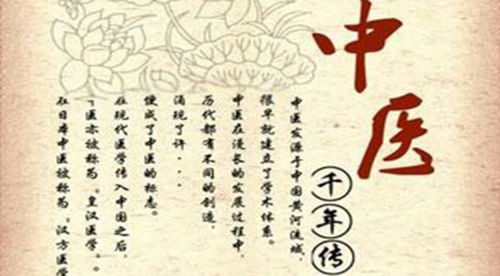 中医
千年传
中医发源于中国黄河流域,
很早就建立了学术体系。
中医在漫长的发展过程中,
历代都有不同的创造,
涌现了许···
便成了中医的标志。
在现代医学传入中国之后,
医亦被称为。皇汉医学。。
在日本中医被称为。汉方医学